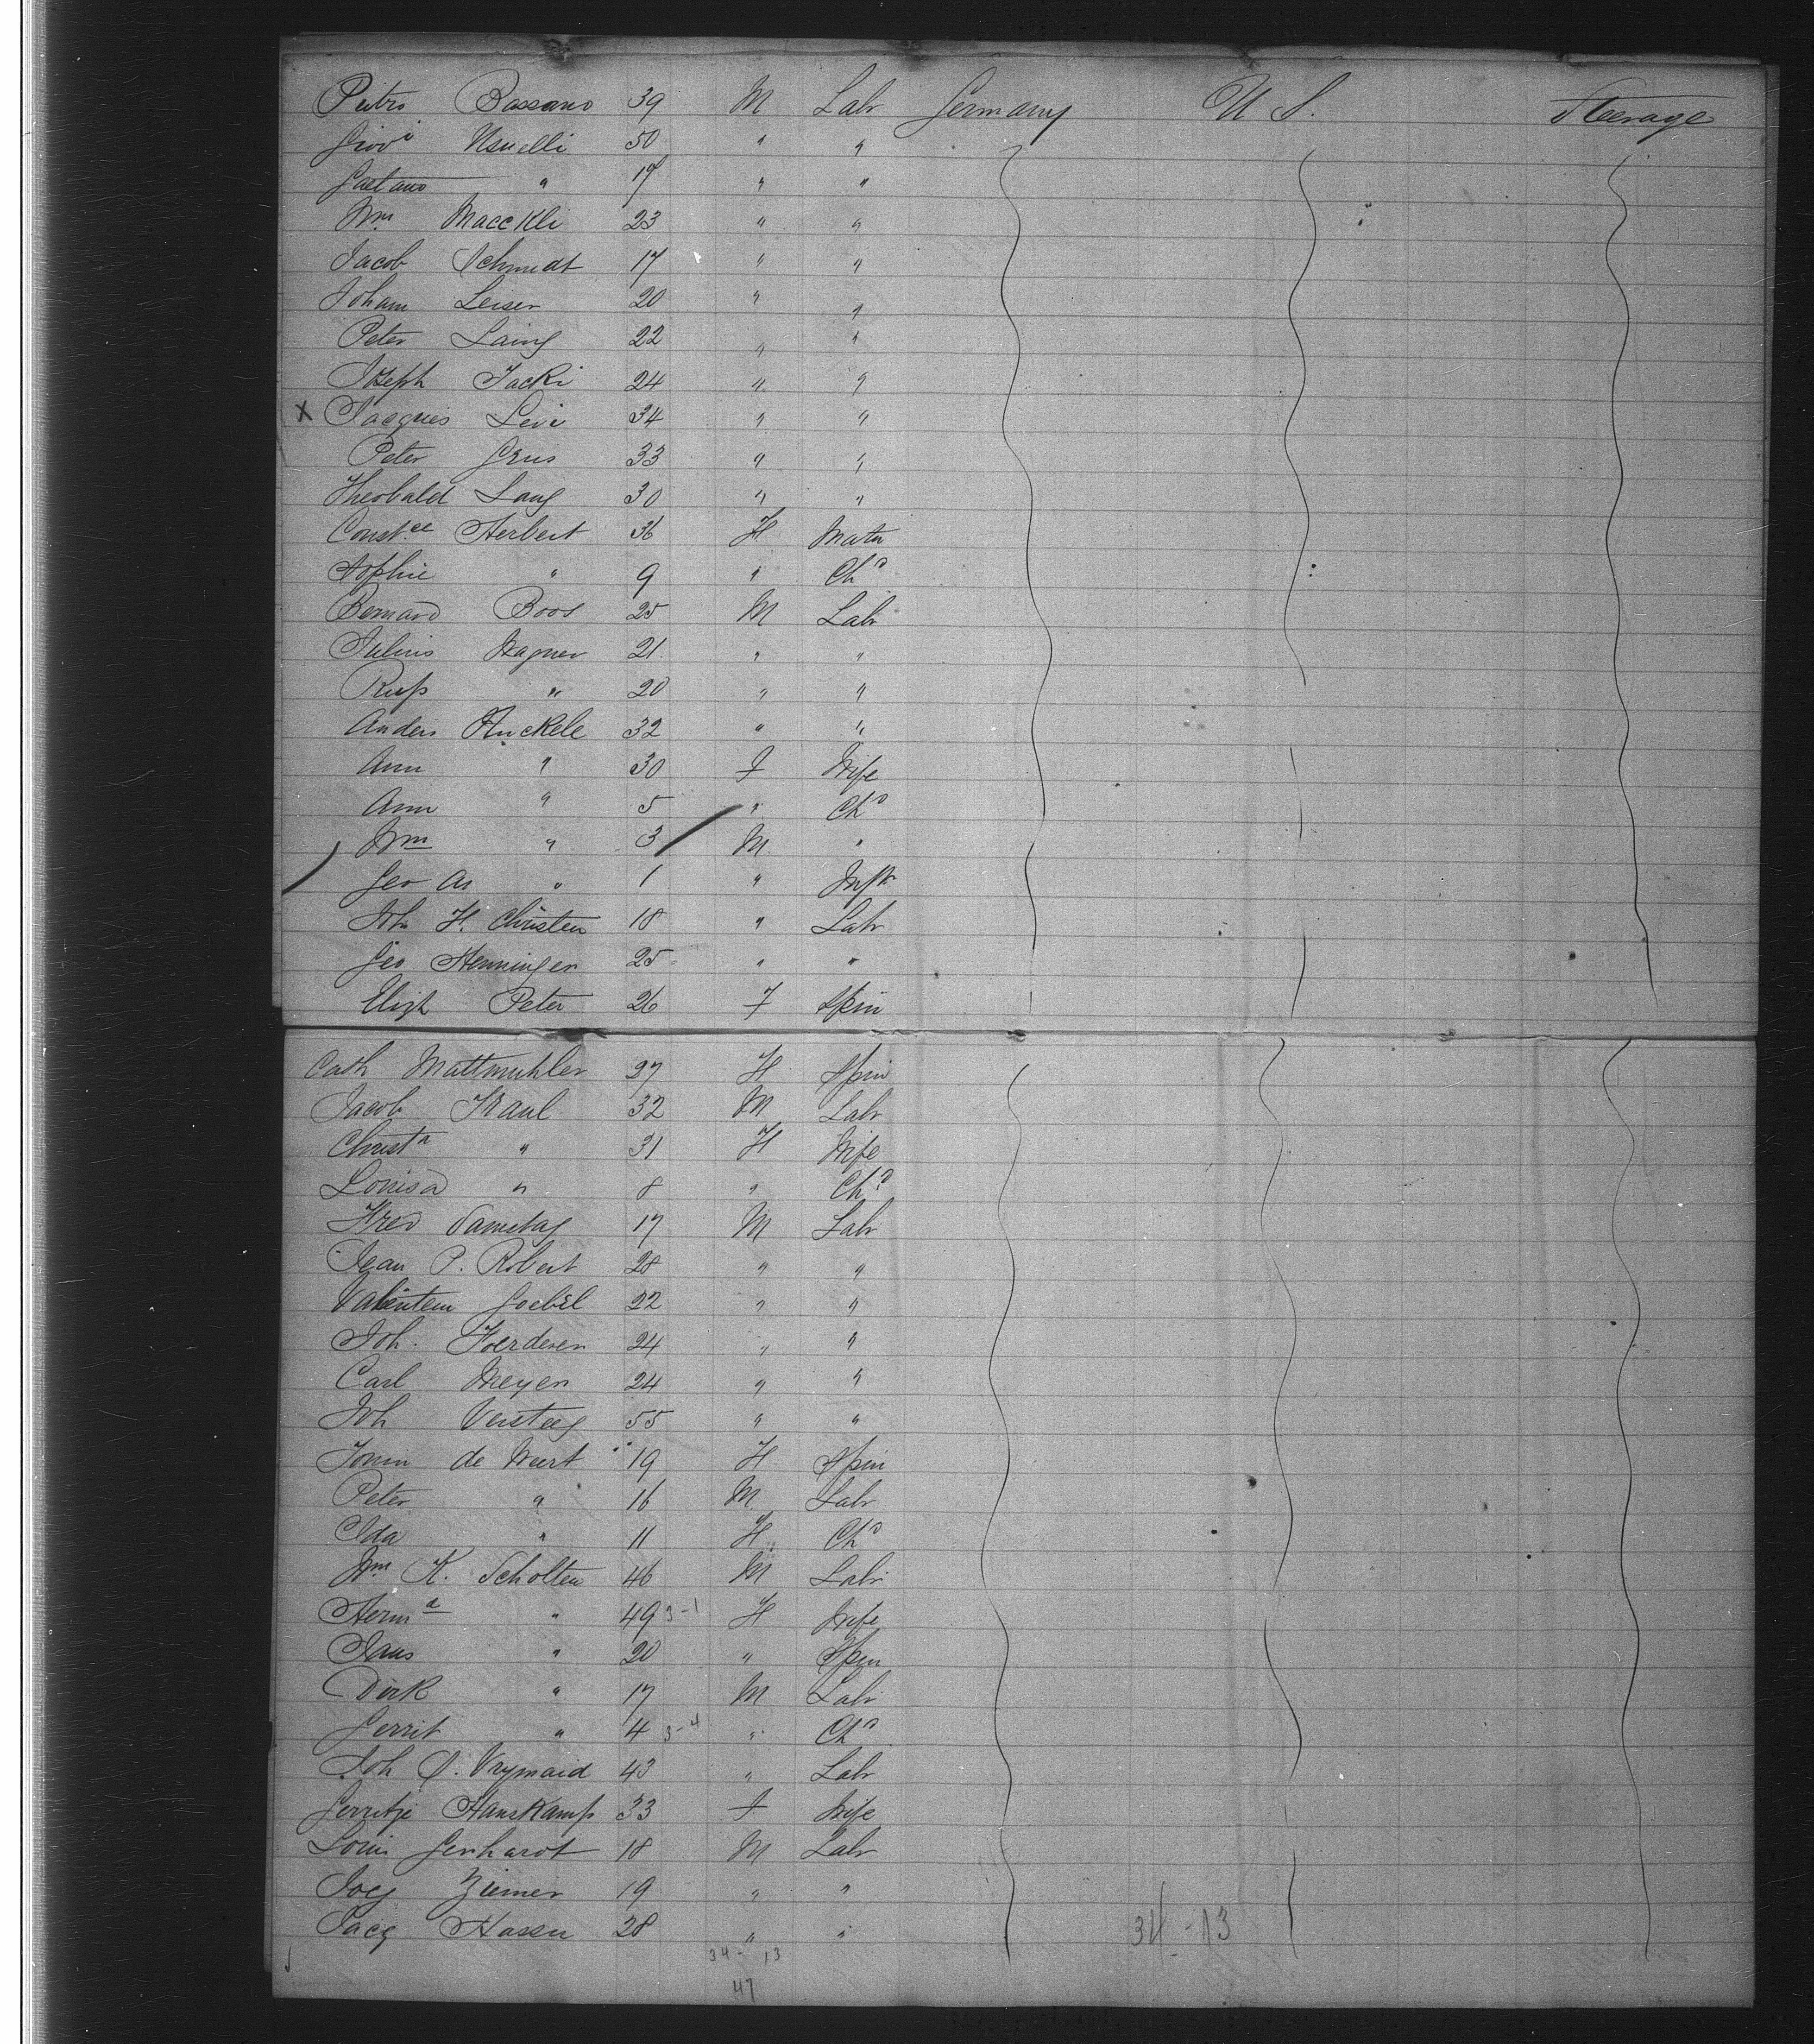 Pietro Bassano 39 M Labr Germany U S. Steerage
Giovi Usuelli 50 " "
Gaetano " 17 " "
Wm Maeckli 23 " "
Jacob Schmidt 17 " "
Joham Leiser 20 " "
Peter Laing 22 " "
Joseph Jacki 24 " "
X Jacques Levi 34 " "
Peter Grus 33 " "
Theobald Lang 30 " "
Const.ce Herbert 36 F Matn
Sophie " 9 " Chd
Bernard Boos 25 M Labr
Julius Wagner 21 " "
" 20 " "
Anders Huckele 32 " "
Ann " 30 F Wife
Ann " 5 " Chd
Wm " 3 M "
Geo " 1 " Inft
Joh H. Christen 18 " Labr
Geo Henninger 25 " "
Elizh Peter 26 F Spin
Cath Mattmuhler 27 F Spin
Jacob Kraul 32 M Labr
Christn " 31 F Wife
Louisa " 8 " Chd
Fred Samstag 17 M Labr
Jean P. Robert 28 " "
Valentein Goebel 22 " "
Joh. Foerderer 24 " "
Carl Meyer 24 " "
Joh Versteeg 55 " "
de Weert 19 F Spin
Peter " 16 M Labr
Ida " 11 F Chd
Wm K. Scholten 46 M Labr
Herma " 49 3-1 F Wife
" 20 " Spin
Dirk " 17 M Labr
Gerrit " 4 3-4 " Chd
Joh Vrymaid 43 " Labr
Gerritje Hanskamp 33 F Wife
Louis Gerhardt 18 M Labr
Ziemer 19 " "
Jacq Hassn 28 " "
34-13
34-13
47